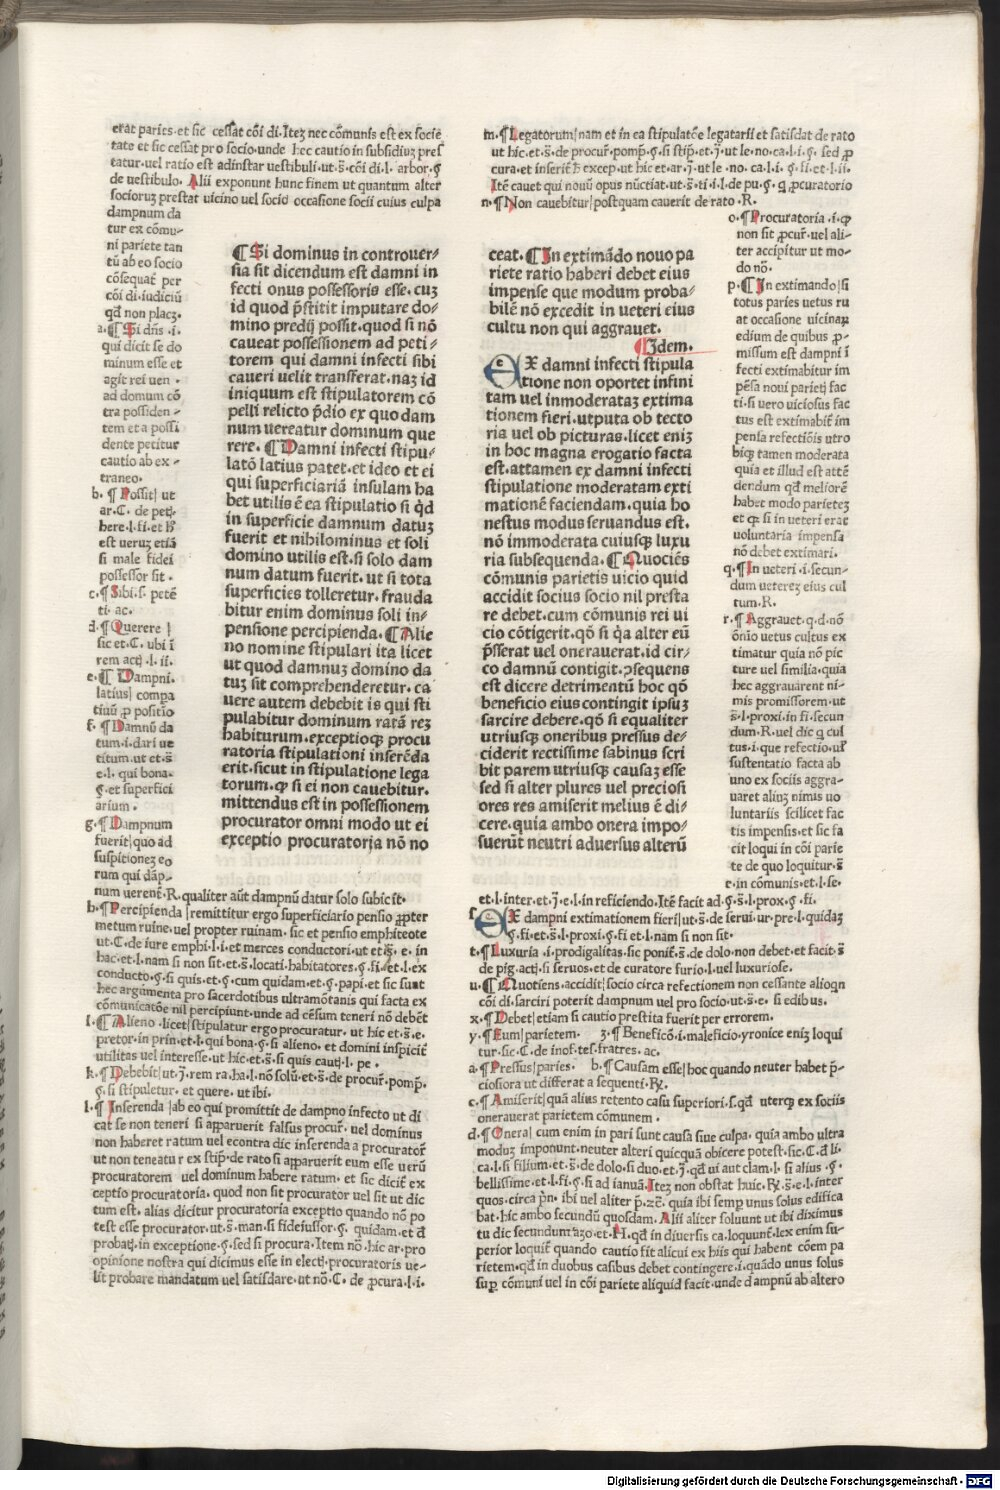 erat paries·et sic cessat cōi di.Itez nec cōmunis est ex socie
tate et sic cessat pro socio·unde hec cautio in subsidiuz pres
tatur·uel ratio est adinstar uestibuli·ut·s̄·cōi di·l· arbor·§
de uestibulo· Alii exponunt hunc finem ut quantum alter
socioruz prestat uicino uel socio occasione socii cuius culpa
dampnum da
tur ex cōmu-
ni pariete tan
tū ab eo socio
cōsequat̄ per
cōi di·iudiciū
qd̄ non placz·
a·¶ Si dn̄s ·i·
qui dicit se do
minum esse et
agit rei uen ·
ad domum cō
tra possiden-
tem et a possi
dente petitur
cautio ab ex-
traneo·
b· ¶ Possit| ut
ar·C· de petj·
here·l·fi·et h̄
est ueruz etiā
si male fidei
possessor sit ·
c·¶ Sibi·s· petē
ti· ac·
d·¶Querere |
sic et·C· ubi ī
rem actj·l·ii·
e·¶ Dampni·
latius| compa
tiuū ꝓ positio
f·¶ Damnū da
tum·i·dari ue
titum·ut et·s̄
e·l· qui bona·
§·et superfici
arium ·
g·¶Dampnum
fuerit|quo ad
suspitionez eo
rum qui dāp-
num uerent̄·R·qualiter aūt dampnū datur solo subicit·
h·¶Percipienda |remittitur ergo superficiario pensio ꝓpter
metum ruine·uel propter ruinam· sic et pensio emphiteote
ut·C·de iure emphi·l·i·et merces conductori·ut et·s̄· e· in
hac·et·l·nam si non sit·et·s̄·locati·habitatores·§·fi·et·l·ex
conducto·§·si quis·et·§·cum quidam·et·§·papi·et sic sunt
hec argumenta pro sacerdotibus ultramōtanis qui facta ex
cōmunicatōe nil percipiunt·unde ad cēsum teneri nō debēt
i·¶Alieno ·licet|stipulatur ergo procuratur· ut hic et·s̄·e·
pretor·in prin·et·l·qui bona·§·si alieno· et domini inspicit̄
utilitas uel interesse·ut hic·et·s̄·si quis cautj·l· pe ·
k·¶Debebit|ut·j̄·rem ra·ha·l·nō solū·et·s̄·de procur̄·pomp̄·
§·si stipuletur· et quere· ut ibi·
l·¶ Inserenda |ab eo qui promittit de dampno infecto ut di
cat se non teneri si apparuerit falsus procur̄· uel dominus
non haberet ratum uel econtra dic inserenda a procurator̄
ut non teneatur ex stip̄·de rato si apparuerit eum esse uerū
procuratorem uel dominum habere ratum· et sic dicit̄ ex
ceptio procuratoria· quod non sit procurator uel sit ut dic
tum est· alias dicitur procuratoria exceptio quando nō po
test esse procurator·ut·s̄·man·si fideiussor·§· quidam·et d̄
probatj·in exceptione·§·sed si procura·Item nō·hic ar·pro
opinione nostra qui dicimus esse in electj·procuratoris ue-
lit probare mandatum uel satisdare·ut nō·C· de ꝓcura·l·i·
¶Si dominus in controuer-
sia sit dicendum est damni in
fecti onus possessoris esse·cuz
id quod p̄stitit imputare do-
mino predij possit·quod si nō
caueat possessionem ad peti-
torem qui damni infecti sibi
caueri uelit transferat·naz id
iniquum est stipulatorem cō
pelli relicto p̄dio ex quo dam
num uereatur dominum que
rere·¶Damni infecti stipu-
latō latius patet·et ideo et ei
qui superficiariā insulam ha
bet utilis ē ea stipulatio si qd̄
in superficie damnum datuz
fuerit et nihilominus et soli
domino utilis est·si solo dam
num datum fuerit·ut si tota
superficies tolleretur·frauda
bitur enim dominus soli in-
pensione percipienda·¶Alie
no nomine stipulari ita licet
ut quod damnuz domino da
tuz sit comprehenderetur·ca
uere autem debebit is qui sti
pulabitur dominum ratā rez
habiturum·exceptioqꝫ procu
ratoria stipulationi inserēda
erit·sicut in stipulatione lega
torum·qꝫ si ei non cauebitur·
mittendus est in possessionem
procurator omni modo ut ei
exceptio procuratoria nō no
m·¶Legatorum|nam et in ea stipulatōe legatarii et satisdat de rato
ut hic·et·s̄·de procur̄·pomp̄·§·si stip̄·et·j̄·ut le·no·ca·l·i·§· sed ꝓ
cura·et inserit̄ h̄ excep·ut hic et·ar·j̄·ut le·no·ca·l·i· §·fi·et·l·ii·
Itē cauet qui nouū opus nūctiat·ut·s̄·ti·i·l·de pu·§· q ꝓcuratorio
n·¶Non cauebitur|postquam cauerit de rato ·R·
ceat·¶In extimādo nouo pa
riete ratio haberi debet eius
impense que modum proba-
bilē nō excedit in ueteri eius
cultu non qui aggrauet·
¶Idem·
EX damni infecti stipula
tione non oportet infini
tam uel inmoderataz extima
tionem fieri·utputa ob tecto
ria uel ob picturas·licet eniz
in hoc magna erogatio facta
est·attamen ex damni infecti
stipulatione moderatam exti
mationē faciendam·quia ho
nestus modus seruandus est·
nō immoderata cuiusqꝫ luxu
ria subsequenda·¶Quociēs
cōmunis parietis uicio quid
accidit socius socio nil presta
re debet·cum cōmunis rei ui
cio cōtigerit·qō si q̄a alter eū
p̄sserat uel onerauerat·id cir-
co damnū contigit·ꝯsequens
est dicere detrimentū hoc qō
beneficio eius contingit ipsuz
sarcire debere·qō si equaliter
utriusqꝫ oneribus pressus de-
ciderit rectissime sabinus scri
bit parem utriusqꝫ causaz esse
sed si alter plures uel preciosi
ores res amiserit melius ē di-
cere·quia ambo onera impo-
suerūt neutri aduersus alterū
o·¶Procuratoria ·i·qꝫ
non sit ꝓcur̄·uel ali-
ter accipitur ut mo-
do nō·
p·¶In extimando|si
totus paries uetus ru
at occasione uicinaꝝ
edium de quibus ꝓ-
missum est dampni ī
fecti extimabitur im
pēsa noui parietj fac
ti·si uero uiciosus fac
tus est extimabit̄ im
pensa refectiōis utro
biqꝫ tamen moderata
quia et illud est attē
dendum qd̄ meliorē
habet modo parietez
et qꝫ si in ueteri erat
uoluntaria impensa
nō debet extimari·
q·¶In ueteri ·i·secun-
dum ueterez eius cul
tum·R·
r·¶Aggrauet·q·d·nō
ōnio uetus cultus ex
timatur quia nō pic
ture uel similia·quia
hec aggrauarent ni-
mis promissorem·ut
s̄·l·proxi·in fi·secun
dum·R·uel dic q cul
tus·i·que refectio·ul̄
sustentatio facta ab
uno ex sociis aggra-
uaret aliuz nimis uo
luntariis scilicet fac
tis impensis·et sic fa
cit loqui in cōi parie
te de quo loquitur·s̄
e·in cōmunis·et·l·se·
et·l·inter·et·j̄·e·l·in reficiendo·Itē facit ad·§·s̄·l·prox·§·fi·
s EX dampni extimationem fieri|ut·s̄·de serui·ur·pre·l·quidaz
§·fi·et·s̄·l·proxi·§·fi et·l·nam si non sit·
t·¶Luxuria ·i·prodigalitas·sic ponit̄·s̄·de dolo·non debet·et facit·s̄
de pig·actj·si seruos·et de curatore furio·l·uel luxuriose·
u·¶Quotiens·accidit|socio circa refectionem non cessante alioqn
cōi di·sarciri poterit dampnum uel pro socio·ut·s̄·e· si edibus·
x·¶Debet|etiam si cautio prestita fuerit per errorem·
y·¶Eum|parietem· z·¶Beneficō·i·maleficio·yronice eniz loqui
tur·sic·C·de inof·tes·fratres· ac·
a·¶Pressus|paries· b·¶Causam esse|hoc quando neuter habet p̄-
ciosiora ut differat a sequenti·℞·
c·¶Amiserit|quā alius retento casu superiori·s·qd̄ uterqꝫ ex sociis
onerauerat parietem cōmunem·
d·¶Onera| cum enim in pari sunt causa siue culpa· quia ambo ultra
moduz imponunt·neuter alteri quicquā obicere potest·sic·C·d̄ li·
ca·l·si filium·et·s̄·de dolo·si duo·et·j̄·qd̄ ui aut clam·l·si alius·§·
bellissime·et·l·fi·§·si ad ianuā·Itez non obstat huic·℞·s̄·e·l·inter
quos·circa pn̄· ibi uel aliter p̄·zē· quia ibi semp unus solus edifica
bat·hic ambo secundū quosdam· Alii aliter soluunt ut ibi diximus
tu dic secundum azo·et·H·qd̄ in diuersis ca·loquunt̄·lex enim su-
perior loquit̄ quando cautio fit alicui ex hiis qui habent cōem pa
rietem·qd̄ in duobus casibus debet contingere·i·quādo unus solus
sup cōmuni uel in cōi pariete aliquid facit·unde dampnū ab altero
Digitalisierung gefördert durch die Deutsche Forschungsgemeinschaft - DFG